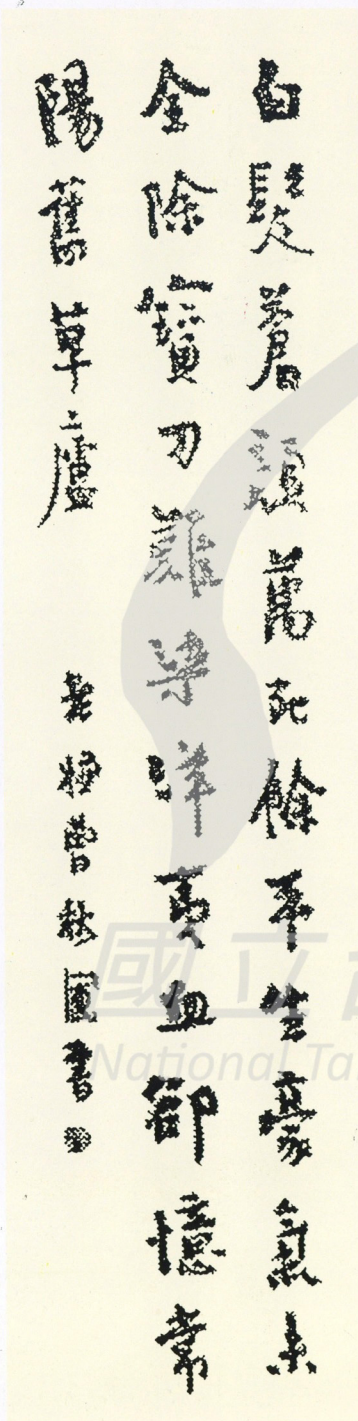 白髮蒼顏萬死餘平生豪氣未
全除寶刀難染洋夷血卻憶常
陽舊草廬 老嫌曹秋圃書
國立
National Ta